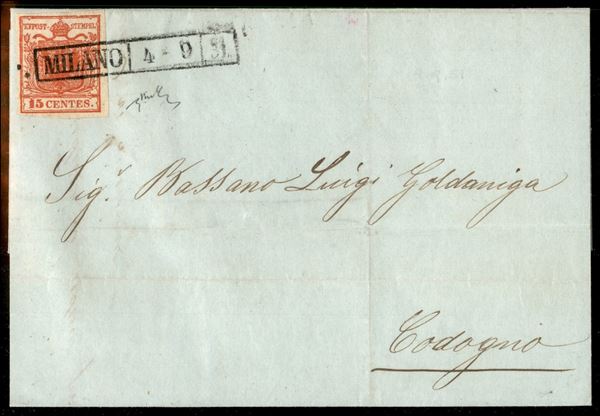 KKPOST-STEMPEL
MILANO 4-9 51.
15 CENTES.
Sig.r Bassano Luigi Goldaniga
Codogno